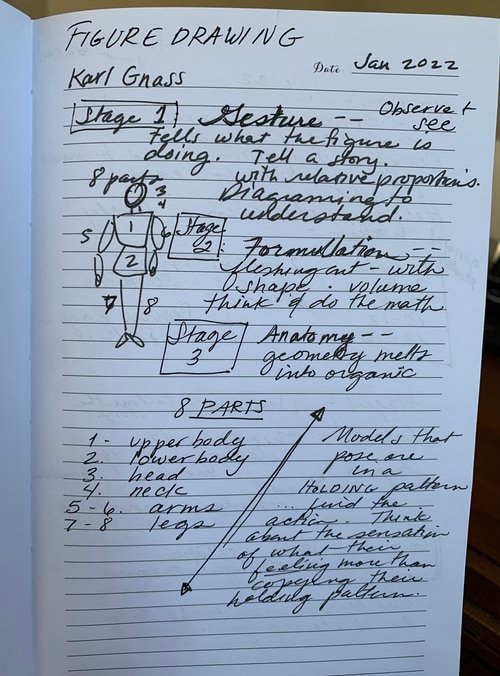 FIGURE DRAWING
Karl Gnass
Date Jan 2022
Stage 1
Gesture -- Observe &
see
tells what the figure is
doing. Tell a story.
with relative proportions.
Diagraming to
understand.
8 parts
3
4
5
1
6
2
7
8
Stage
2
Formullation --
fleshing out - with
shape . volume
think & do the math
Stage
3
Anatomy --
geometry melts
into organic
8 PARTS
1 - upper body
2. lower body
3. head
4. neck
5 - 6. arms
7 - 8 legs
Models that
pose are
in a
HOLDING pattern
... find the
action. Think
about the sensation
of what their
feeling more than
copying their
holding pattern.